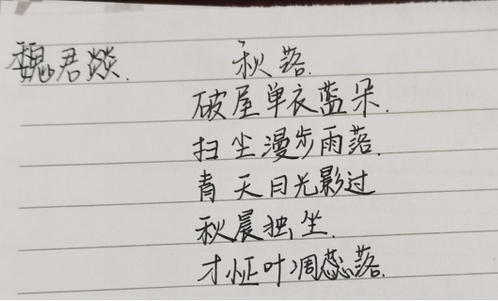 魏君燚. 秋落.
破屋单衣蓝朵.
扫尘漫步雨落.
青天日光影过
秋晨独坐.
才怔叶凋蕊落.